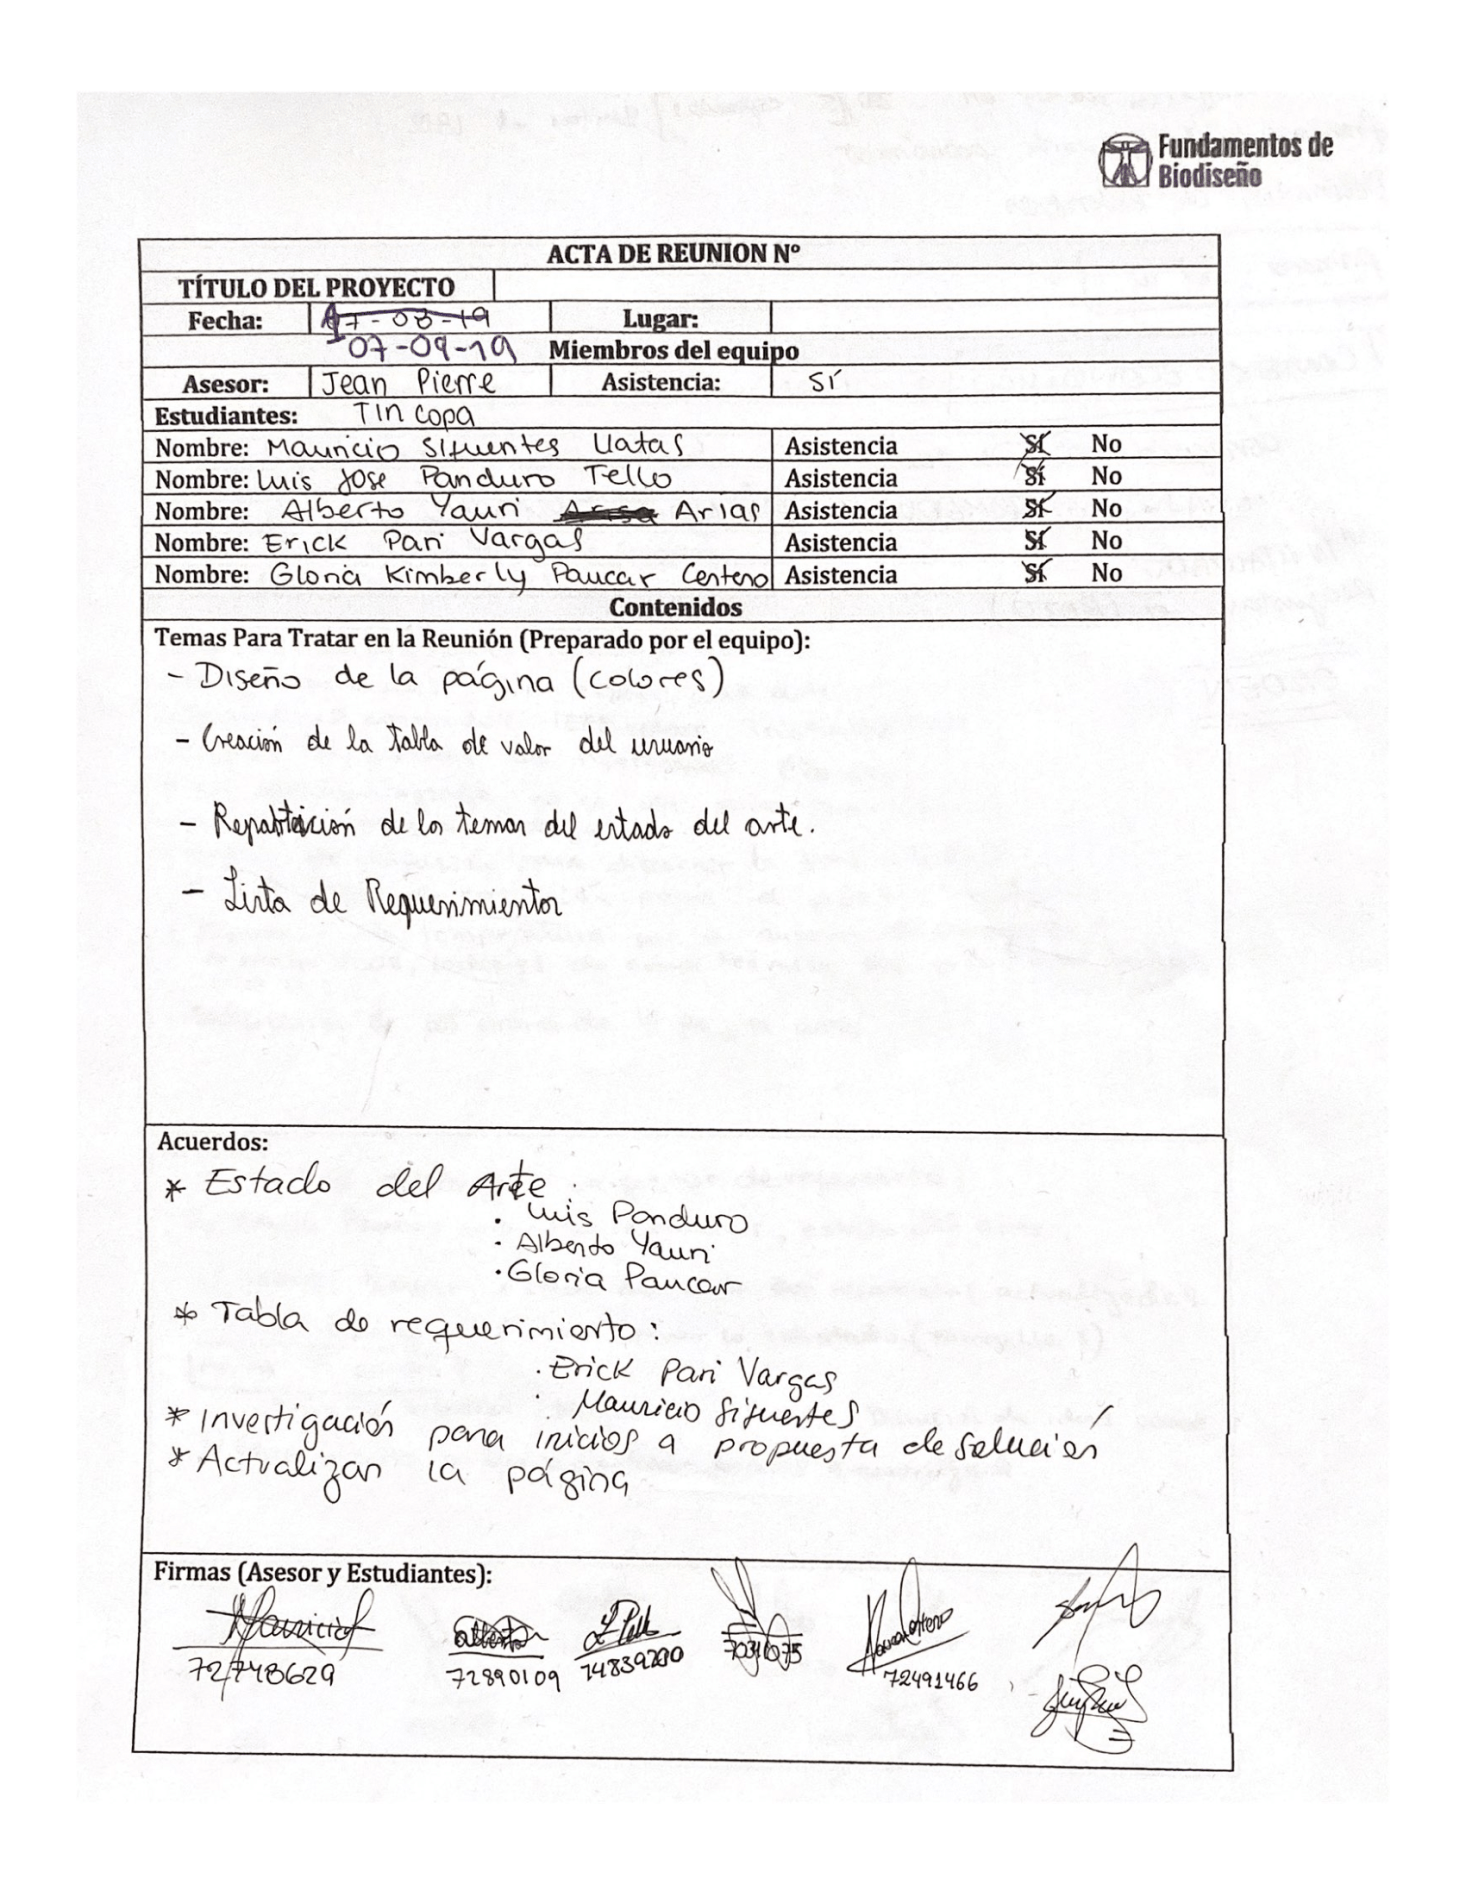 Fundamentos de
Biodiseño
ACTA DE REUNION Nº
TÍTULO DEL PROYECTO
Fecha: 07-09-19 Lugar:
Miembros del equipo
Asesor: Jean Pierre Asistencia: Sí
Estudiantes: Tincopa
Nombre: Mauricio Sifuentes Llatas Asistencia Sí No
Nombre: Luis Jose Panduro Tello Asistencia Sí No
Nombre: Alberto Yauri Arias Asistencia Sí No
Nombre: Erick Pari Vargas Asistencia Sí No
Nombre: Gloria Kimberly Paucar Centeno Asistencia Sí No
Contenidos
Temas Para Tratar en la Reunión (Preparado por el equipo):
- Diseño de la página (colores)
- Creación de la tabla de valor del usuario
- de los temas del estado del arte.
- Lista de Requerimientos
Acuerdos:
* Estado del Arte :
· Luis Panduro
· Alberto Yauri
· Gloria Paucar
* Tabla de requerimiento :
· Erick Pari Vargas
· Mauricio Sifuentes
* Investigación para inicios a propuesta de solución
* Actualizar la página
Firmas (Asesor y Estudiantes):
72748629 72890109 70310075 72491466